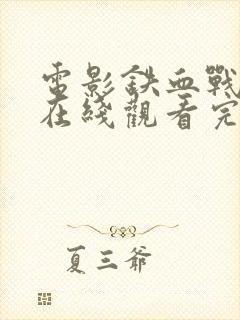 電影鉄血戰
在綫觀看完
夏三爺